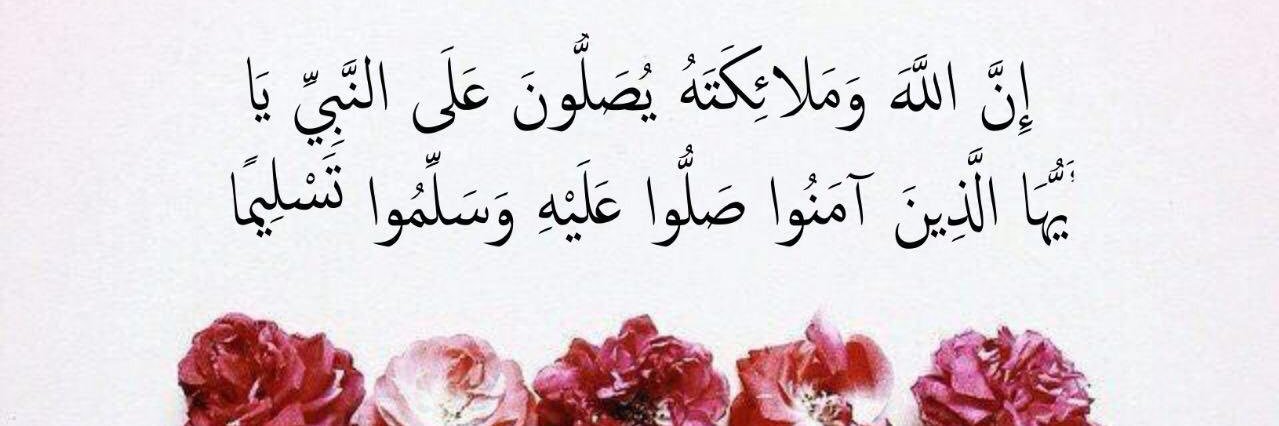 إِنَّ اللَّهَ وَمَلائِكَتَهُ يُصَلُّونَ عَلَى النَّبِيِّ يَا
أَيُّهَا الَّذِينَ آمَنُوا صَلُّوا عَلَيْهِ وَسَلِّمُوا تَسْلِيمًا